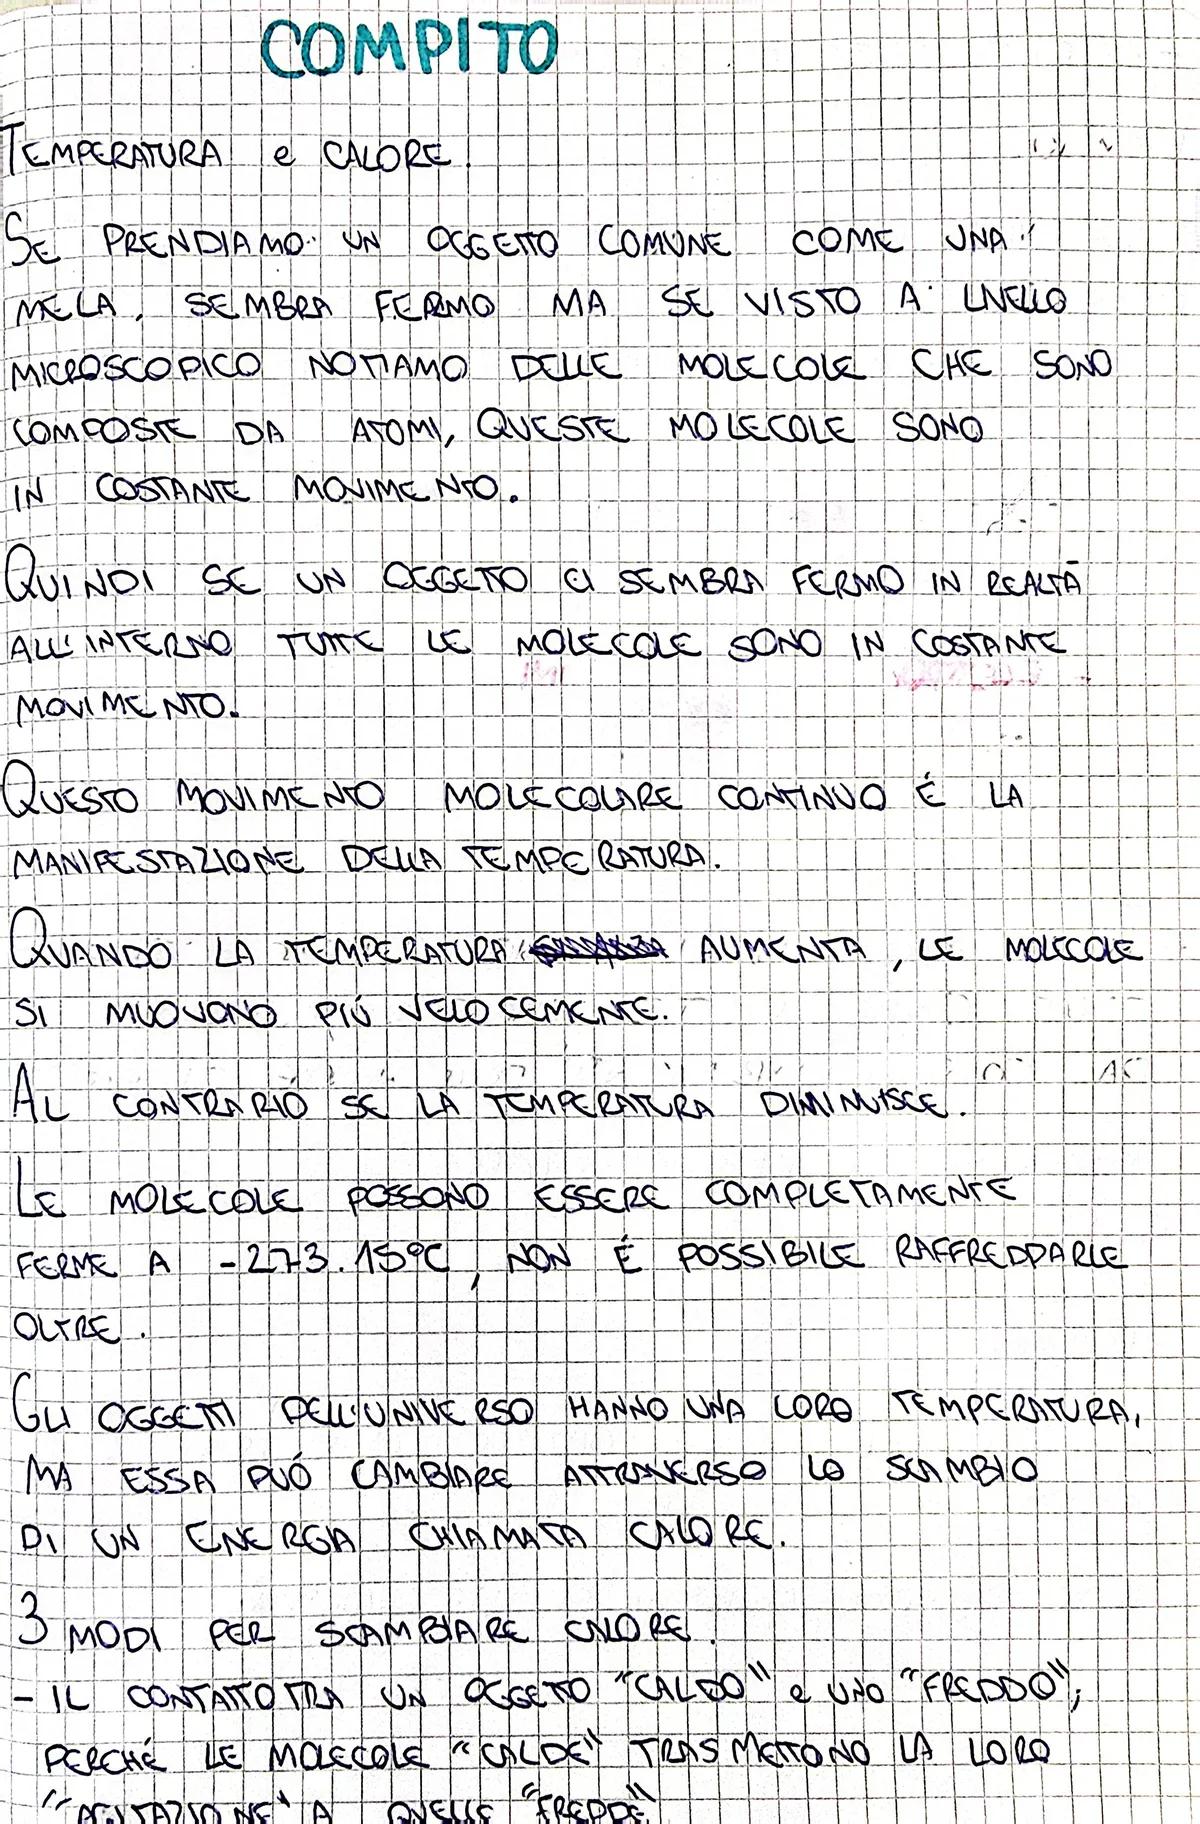 COMPITO
TEMPERATURA e CALORE.
SE PRENDIAMO UN OGGETTO COMUNE COME UNA
MELA, SEMBRA FERMO MA SE VISTO A LIVELLO
MICROSCOPICO NOTIAMO DELLE MOLECOLE CHE SONO
COMPOSTE DA ATOMI, QUESTE MOLECOLE SONO
IN COSTANTE MOVIMENTO.
QUINDI SE UN OGGETTO CI SEMBRA FERMO IN REALTÀ
ALL'INTERNO TUTTE LE MOLECOLE SONO IN COSTANTE
MOVIMENTO.
QUESTO MOVIMENTO MOLECOLARE CONTINUO É LA
MANIFESTAZIONE DELLA TEMPERATURA.
QUANDO LA TEMPERATURA AUMENTA, LE MOLECOLE
SI MUOVONO PIÚ VELOCEMENTE.
AL CONTRARIO SE LA TEMPERATURA DIMINUISCE.
LE MOLECOLE POSSONO ESSERE COMPLETAMENTE
FERME A -273.15°C, NON É POSSIBILE RAFFREDDARLE
OLTRE.
GLI OGGETTI DELL'UNIVERSO HANNO UNA LORO TEMPERATURA,
MA ESSA PUÓ CAMBIARE ATTRAVERSO LO SCAMBIO
DI UN ENERGIA CHIAMATA CALORE.
3 MODI PER SCAMBIARE CALORE.
- IL CONTATTO TRA UN OGGETTO "CALDO" e UNO "FREDDO";
PERCHÉ LE MOLECOLE "CALDE" TRASMETTONO LA LORO
"AGITAZIONE" A QUELLE "FREDDE"